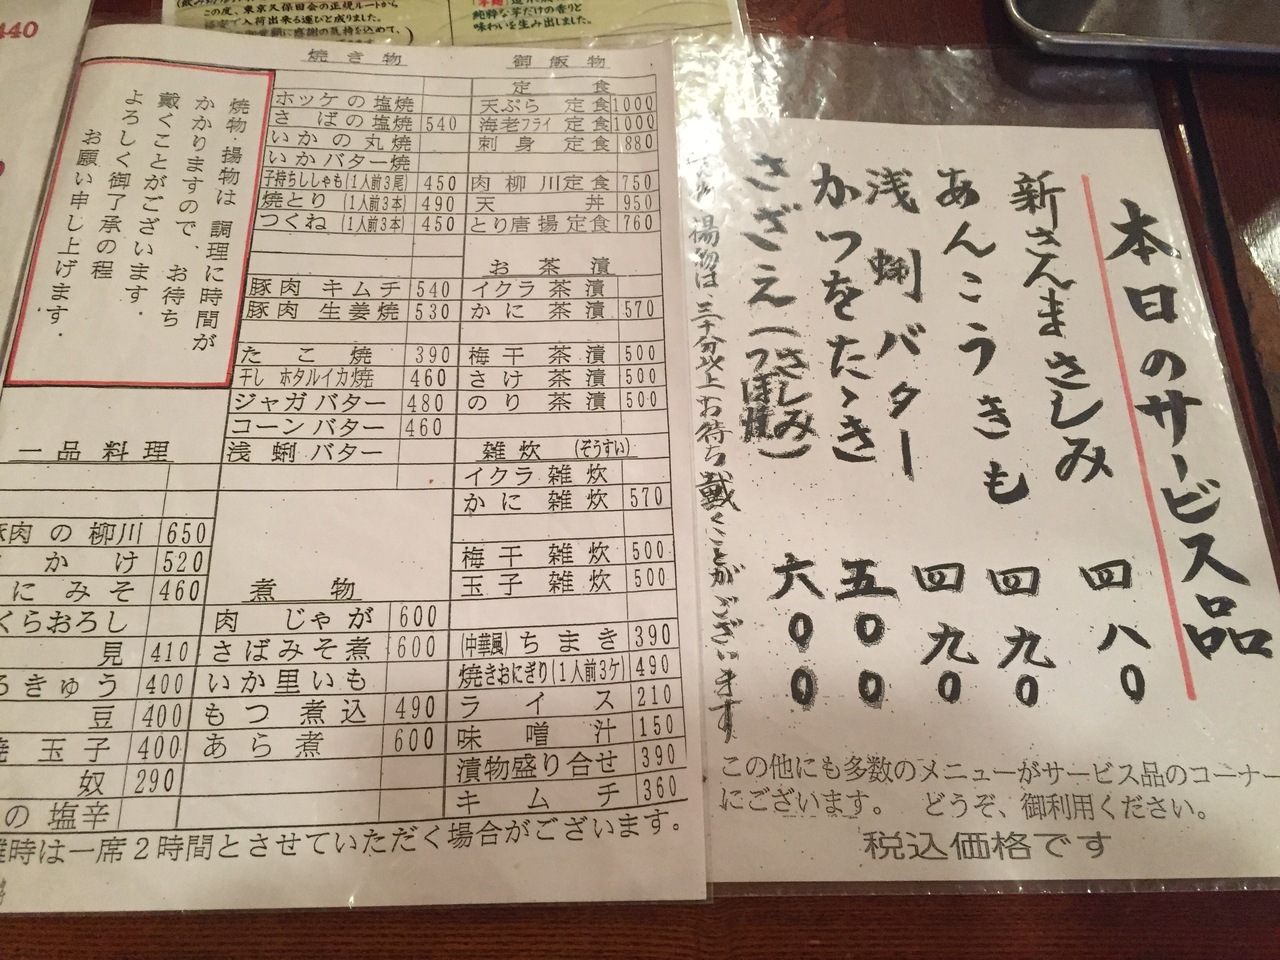 440
この度、東京久保田会の正規ルートから
入荷出来る運びと成りました。
感謝の気持を込めて、
純粋な芋だけの香りと
味わいを生み出しました。
焼物・揚物は 調理に時間が
かかりますので、お待ち
戴くことがございます.
よろしく御了承の程
お願い申し上げます.
焼き物
ホッケの塩焼
さばの塩焼 540
いかの丸焼
いかバター焼
子持ちししゃも(1人前3尾) 450
焼とり (1人前3本) 490
つくね (1人前3本) 450
豚肉 キムチ 540
豚肉 生姜焼 530
たこ焼 390
干し ホタルイカ焼 460
ジャガバター 480
コーンバター 460
浅蜊バター
御飯物
定食
天ぷら 定食 1000
海老フライ 定食 1000
刺身 定食 880
肉柳川定食 750
天丼 950
とり唐揚定食 760
お茶漬
イクラ茶漬
かに茶漬 570
梅干茶漬 500
さけ茶漬 500
のり茶漬 500
雑炊 (ぞうすい)
イクラ雑炊
かに雑炊 570
梅干雑炊 500
玉子雑炊 500
(中華風)ちまき 390
焼きおにぎり(1人前3ケ) 490
ライス 210
味噌汁 150
漬物盛り合せ 390
キムチ 360
一品料理
豚肉の柳川 650
かけ 520
にみそ 460
くらおろし
見 410
ろきゅう 400
豆 400
玉子 400
奴 290
の塩辛
煮物
肉じゃが 600
さばみそ煮 600
いか里いも
もつ煮込 490
あら煮 600
時は一席2時間とさせていただく場合がございます.
本日のサービス品
新さんまさしみ 四八0
あんこうきも 四九0
浅蜊バター 四九0
かつをたゝき 五00
さざえ(さしみ つぼ焼) 六00
揚物は三十分以上お待ち戴くことがございます
この他にも多数のメニューがサービス品のコーナー
にございます。 どうぞ、御利用ください。
税込価格です